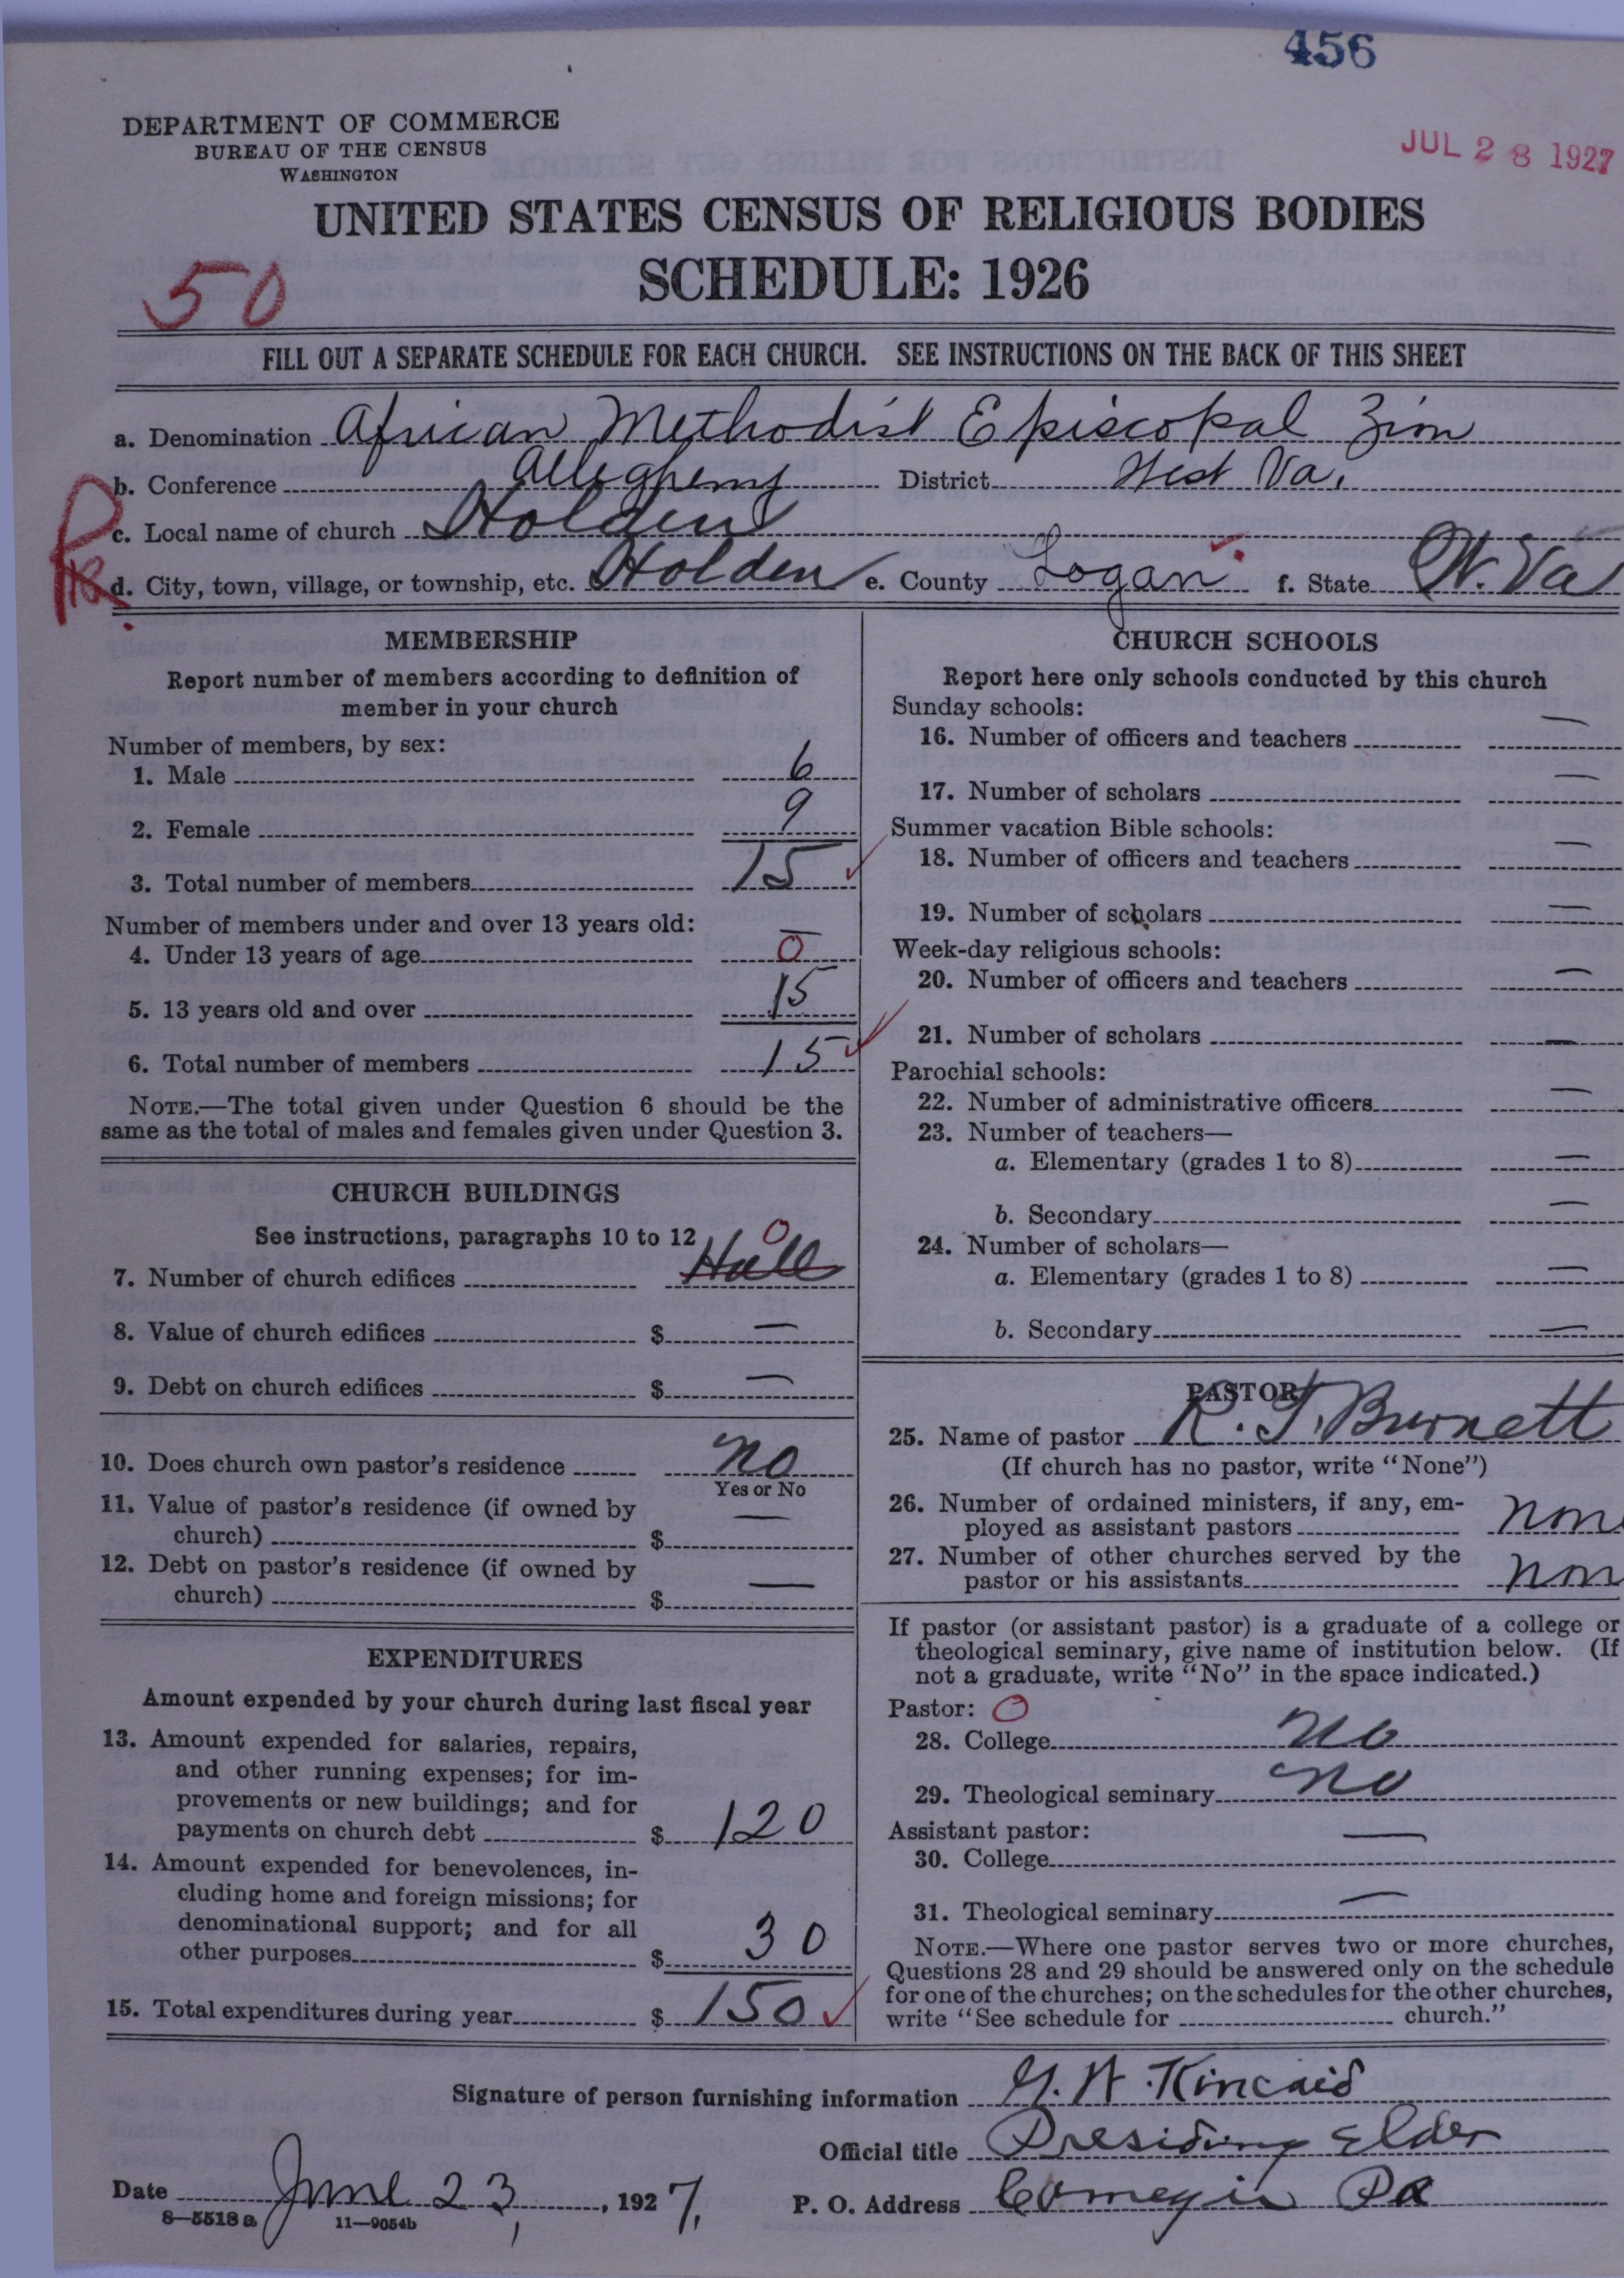 456
DEPARTMENT OF COMMERCE
BUREAU OF THE CENSUS
WASHINGTON
JUL 28 1927
UNITED STATES CENSUS OF RELIGIOUS BODIES
SCHEDULE: 1926
50
FILL OUT A SEPARATE SCHEDULE FOR EACH CHURCH. SEE INSTRUCTIONS ON THE BACK OF THIS SHEET
a. Denomination African Methodist Episcopal Zion
b. Conference Allegheny District West Va.
c. Local name of church Holden
d. City, town, village, or township, etc. Holden e. County Logan f. State W. Va
MEMBERSHIP
Report number of members according to definition of
member in your church
Number of members, by sex:
1. Male 6
2. Female 9
3. Total number of members 15
Number of members under and over 13 years old:
4. Under 13 years of age — 0
5. 13 years old and over 15
6. Total number of members 15
NOTE.—The total given under Question 6 should be the
same as the total of males and females given under Question 3.
CHURCH BUILDINGS
See instructions, paragraphs 10 to 12
7. Number of church edifices Hall 0
8. Value of church edifices $ —
9. Debt on church edifices $ —
10. Does church own pastor's residence no
Yes or No
11. Value of pastor's residence (if owned by
church) $ —
12. Debt on pastor's residence (if owned by
church) $ —
EXPENDITURES
Amount expended by your church during last fiscal year
13. Amount expended for salaries, repairs,
and other running expenses; for im-
provements or new buildings; and for
payments on church debt $ 120
14. Amount expended for benevolences, in-
cluding home and foreign missions; for
denominational support; and for all
other purposes $ 30
15. Total expenditures during year $ 150
CHURCH SCHOOLS
Report here only schools conducted by this church
Sunday schools:
16. Number of officers and teachers —
17. Number of scholars —
Summer vacation Bible schools:
18. Number of officers and teachers —
19. Number of scholars —
Week-day religious schools:
20. Number of officers and teachers —
21. Number of scholars —
Parochial schools:
22. Number of administrative officers —
23. Number of teachers—
a. Elementary (grades 1 to 8) —
b. Secondary —
24. Number of scholars—
a. Elementary (grades 1 to 8) —
b. Secondary —
PASTOR
25. Name of pastor R. T. Burnett
(If church has no pastor, write "None")
26. Number of ordained ministers, if any, em-
ployed as assistant pastors non
27. Number of other churches served by the
pastor or his assistants non
If pastor (or assistant pastor) is a graduate of a college or
theological seminary, give name of institution below. (If
not a graduate, write "No" in the space indicated.)
Pastor: 0
28. College no
29. Theological seminary no
Assistant pastor:
30. College —
31. Theological seminary —
NOTE.—Where one pastor serves two or more churches,
Questions 28 and 29 should be answered only on the schedule
for one of the churches; on the schedules for the other churches,
write "See schedule for church."
Signature of person furnishing information G. W. Kincaid
Official title Presiding Elder
Date June 23, 1927. P. O. Address Pa
8—5518a 11—9054b